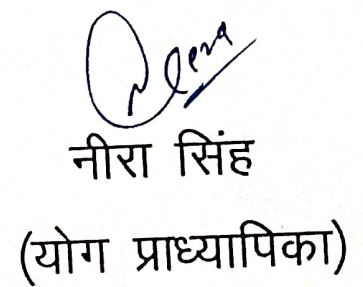 Neera
नीरा सिंह
(योग प्राध्यापिका)